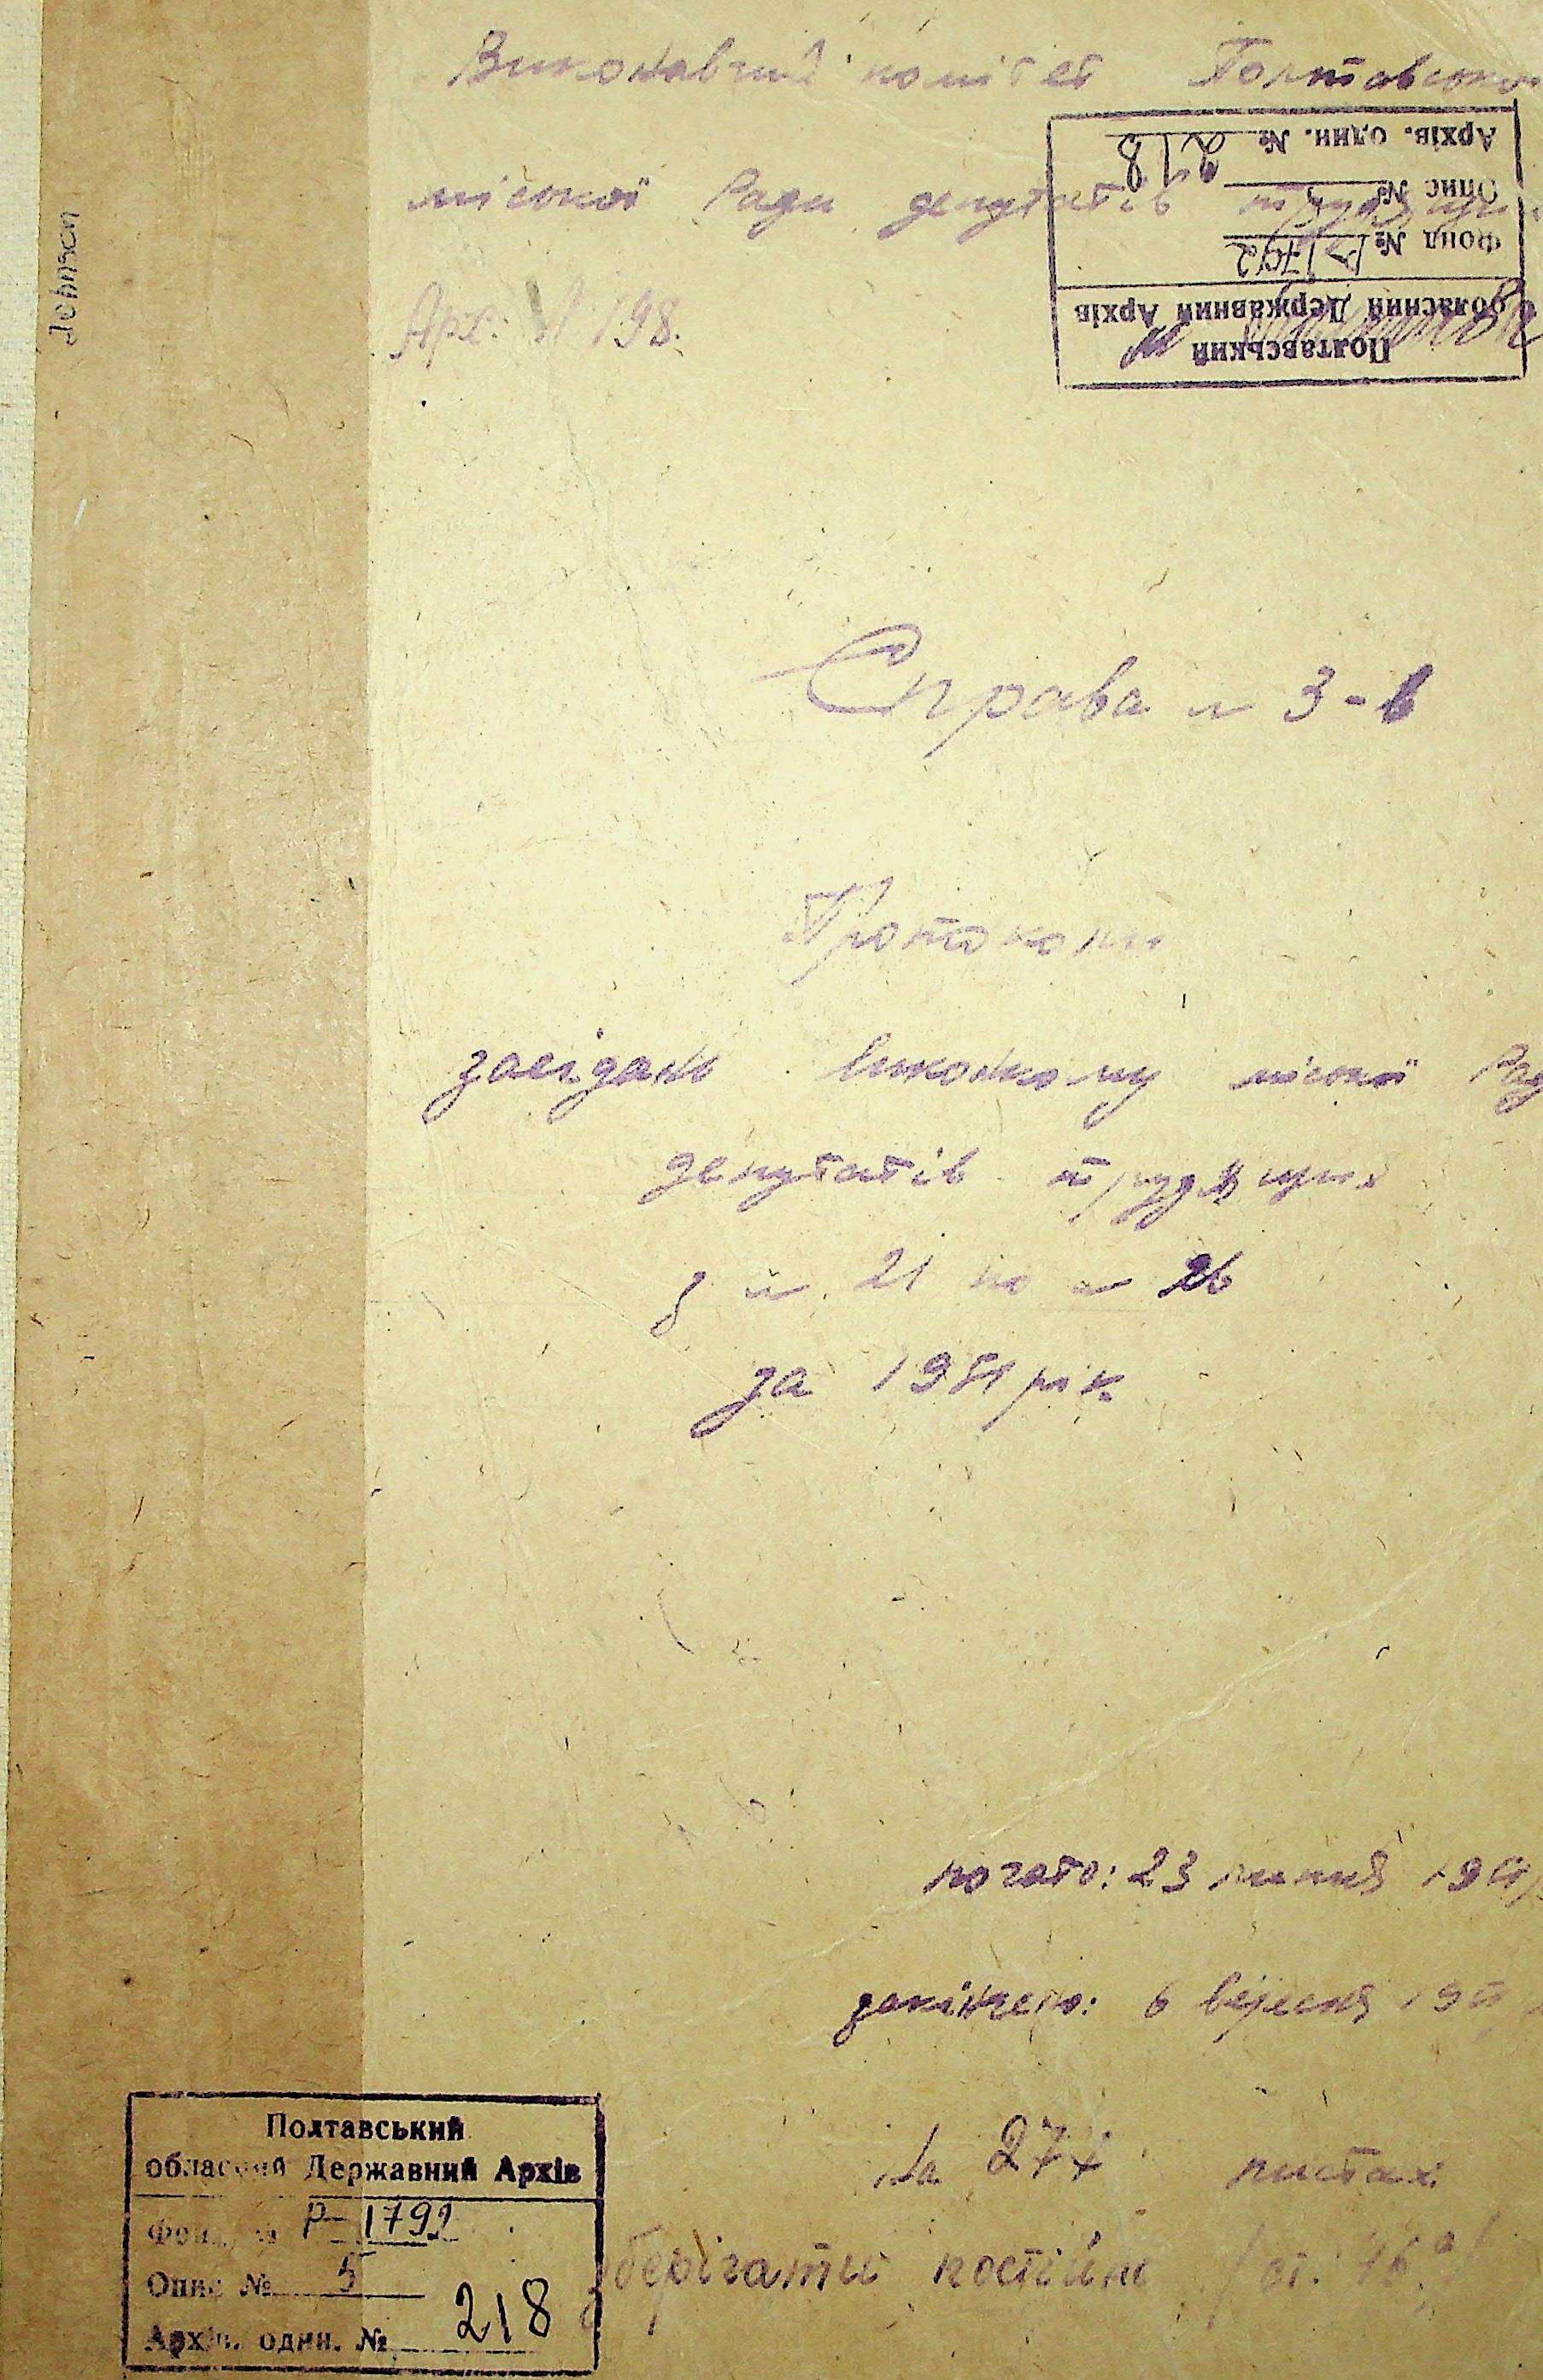 Виконавчий комітет Полтавської
міської Ради депутатів трудящих
Полтавський
обласний Державний Архів
Фонд № Р-1792
Опис №
Архів. один. № 218
Арх. № 198.
Справа № 3-в
Протоколи
засідань виконкому міської Рад
депутатів трудящих
з № 21 по № 26
за 1951 рік
почато: 23 липня 1951
закінчено: 6 вересня 1951
На 277 листах
зберігати постійно
Полтавський
обласний Державний Архів
Фонд № Р-1792
Опис № 5
Архів. один. № 218